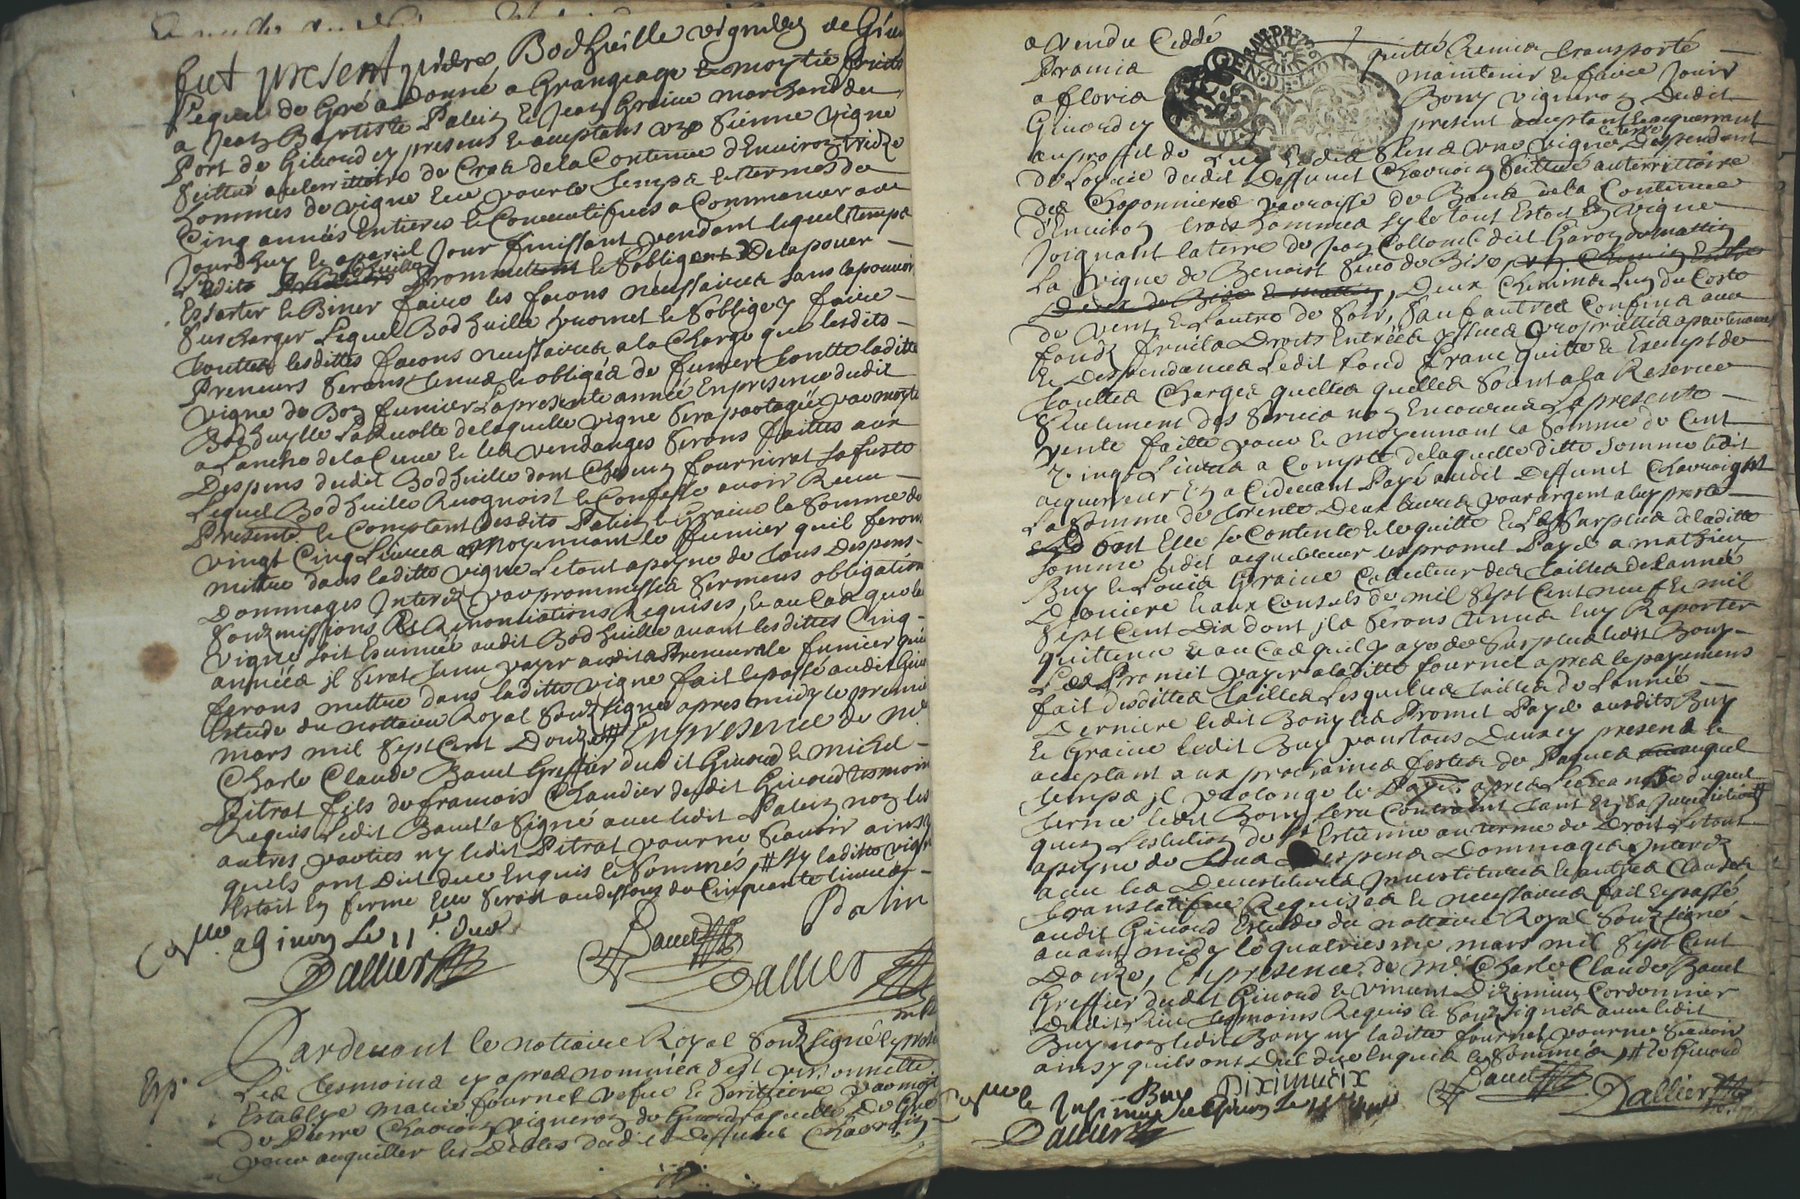 fut present pierre Bodhuille vigneron de Givor
Lequel de Gré a donné a Grangeage a moytié fruits
a Jean Baptiste Palein et Jean Graine marchand du
Port de Givord y presens et acceptans une sienne vigne
scittué au territoire de Cras de la Contenue d'Environ treize
hommes de vigne et ce pour le temps et terme de
Cinq années Entieres et Consecutifves a Commancer au
Jourdhuy le apareil Jour finissant pendant lequel temps
Ledit Bodhuille promettent et sobligent de la pouer
Essarter et Biner faire les façons necessaires sans le pouvoir
surcharger Lequel Bodhuille promet et soblige y faire
touttes lesdittes façons necessaires a la Charge que lesdits
Preneurs serons tenus et obligés de fumer toutte laditte
vigne de Bon fumier La presente année En presence dudit
Bodhuylle La Recolte de laquelle vigne sera partagée par moytié
a Lanche de la Cuve et les vendanges serons faittes aux
Despens dudit Bodhuille dont Chacun fournirat sa fuste
Lequel Bodhuille Recognoist et Confesse avoir Receu
Presente et Comptent desdits Palein et Graine la somme de
vingt Cinq Livres moyennant le fumier quil ferons
mettre dans laditte vigne Le tout a peyne de tous despens
Dommages Interêts par prommesses sermens obligations
soubmissions et Renontiations Requises, et au Cas que la
vigne soit avant lesdittes Cinq
années il serat tenu payer audits Preneurs le fumier quil
ferons mettre dans laditte vigne fait et passé audit Givord
Estude du nottaire Royal soubsigné apres midy le premier
mars mil sept Cent Douze En presence de Me
Charle Claude Bauet Greffier dudit Givord et michel
Pitrat fils de francois Chandier dudit Givord tesmoins
Requis Ledit Bauet a signé avec ledit Palein non les
autres parties ny ledit Pitrat pour ne scavoir ainsy
quils ont Dit de ce Enquis et sommés # sy laditte vigne
estoit En ferme Elle seroit audessous de Cinquante livres
Palin
a Givors Le 11e dud
Dallier
Bauet
Dallier
Pardevant le nottaire Royal soubsigné et presens
Les tesmoins cy apres nommés sest personnelle
Establye marie fournel vefve et heritiere par moytié
de Pierre Chavroin vigneron de Givord laquelle De Gré
pour acquitter les Debtes dudit Deffunt Chavroin
Exp.
a Vendu Ceddé quitté Remis transporté
Promis maintenir et faire Jouir
a floris Bouy vigneron dudit
Givord y present acceptant et acquerrant
au proffit de Luy et des siens une vigne et terre Despendant
de Loyrie dudit Deffunt Chavroin scittué au territtoire
des Chaponnieres parroisse de Bans de la Contenue
d'Environ trois hommes sy le tout Estoit En vigne
Joignant la terre de Jean Collomb dit Garon de mattin
La vigne de Benoist de Bise, Deux Chemins Lun du Costé
de vent et Lautre de soir, sauf autres Confins aux
fonds fruits Droits Entrées yssues proprietés apartenances
et Despendances Ledit fond franc quitte et Exempt de
touttes Charges quelles quelles soint a la Reserve
seulement des servis non Encourus La presente
vente faitte pour et moyennant la somme de Cent
vingt Livres a Compte de laquelle ditte somme ledit
acquerreur En a Cidevant Payé audit Deffunt Chavroin
La somme de trente Deux livres pour argent a luy presté
dont Elle se Contente et le quitte et Le surplus de laditte
somme Ledit acquerreur promet Payer a mathieu
Buy et Louis Graine Collecteur des tailles de lannée
Derniere et aux Consuls de mil sept Cent neuf et mil
sept Cent Dix dont il serons tenus luy Raporter
quittence et au Cas quil y aye de surplus ledit Bouy
Les Promet payer a laditte fournel apres le payement
fait desdittes tailles Lesquelles tailles de lannée
Derniere ledit Bouy les Promet Payer ausdits Buy
et Graine ledit Buy pour tous Deux y present et
acceptant aux prochaines festes de Paques auquel
temps il prolonge le Paye apres Lecheance duquel
terme ledit Bouy sera Contraint tant En la Juridiction
quen Leslection de St Estienne au terme du Droit Le tout
a peyne de tous Despens Dommages Interêts
avec les Devestitures Investitures et autres Clauses
translatifves Requises et necessaires fait et passé
audit Givord Estude du nottaire Royal soubsigné
avant midy le quatriesme mars mil sept Cent
Douze, En presence de Me Charle Claude Bauet
Greffier dudit Givord et vincent Diximieux Cordonnier
dudit lieu tesmoins Requis et soubsignés avec ledit
Buy non ledit Bouy ny laditte fournel pour ne scavoir
ainsy quils ont Dit de ce Enquis et sommés # de Givord
Buy Diximieux
Bauet
Dallier
Dallier